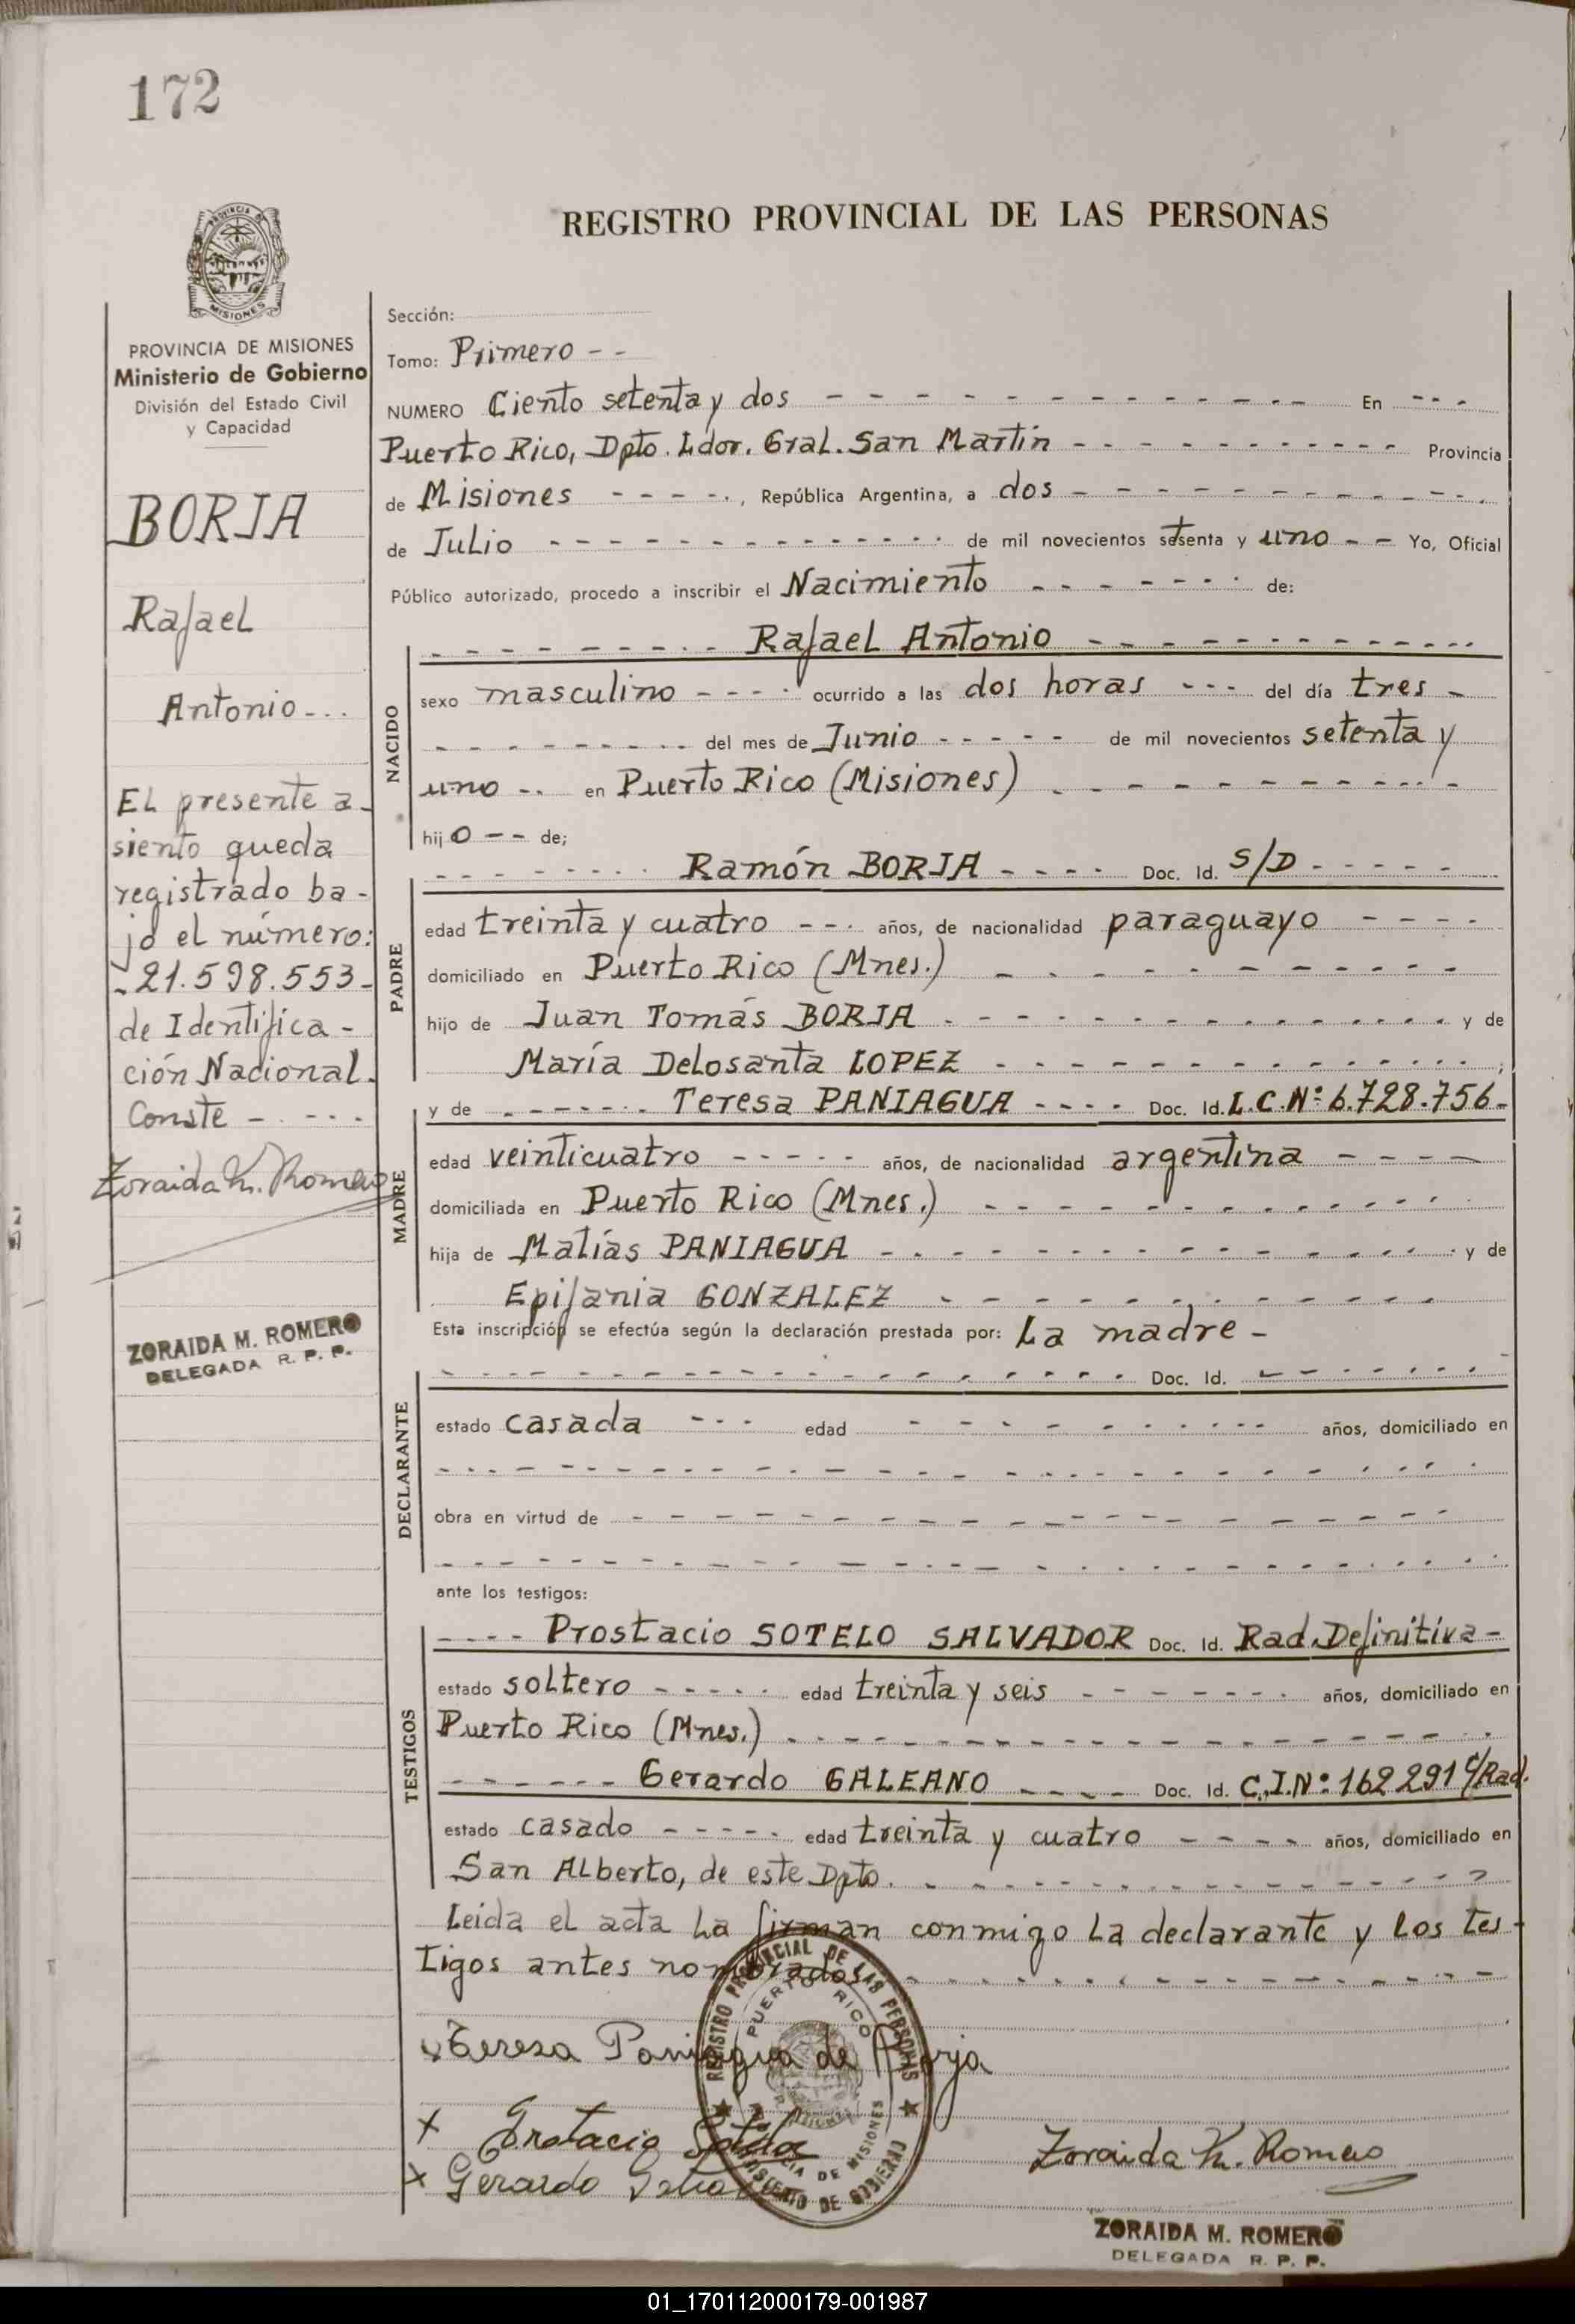 172
PROVINCIA DE MISIONES
REGISTRO PROVINCIAL DE LAS PERSONAS
PROVINCIA DE MISIONES
Ministerio de Gobierno
División del Estado Civil
y Capacidad
BORJA
Rafael
Antonio - - -
El presente a-
siento queda
registrado ba-
jo el número:
- 21.598.553 -
de Identifica -
ción Nacional.
Conste - - - - -
Zoraida M. Romero
ZORAIDA M. ROMERO
DELEGADA R. P. P.
Sección:
Tomo: Primero - -
NUMERO Ciento setenta y dos - - - En - - -
Puerto Rico, Dpto. Ldor. Gral. San Martín - - - Provincia
de Misiones - - - -, República Argentina, a dos - - -
de Julio - - - de mil novecientos setenta y uno - - Yo, Oficial
Público autorizado, procedo a inscribir el Nacimiento - - - de:
- - - Rafael Antonio - - -
NACIDO
sexo masculino - - - - ocurrido a las dos horas - - - del día tres -
- - - del mes de Junio - - - - - de mil novecientos setenta y
uno - - en Puerto Rico (Misiones) - - -
hijo - - de;
PADRE
- - - Ramón BORJA - - - - Doc. Id. S/D - - - - -
edad treinta y cuatro - - - años, de nacionalidad paraguayo - - - -
domiciliado en Puerto Rico (Mnes.) - - -
hijo de Juan Tomás BORJA - - - y de
María Delosanta LOPEZ - - - ;
MADRE
y de - - - Teresa PANIAGUA - - - - Doc. Id. L.C.Nº 6.728.756 -
edad veinticuatro - - - - - años, de nacionalidad argentina - - - -
domiciliada en Puerto Rico (Mnes.) - - -
hija de Matías PANIAGUA - - - y de
Epifania GONZALEZ - - -
Esta inscripción se efectúa según la declaración prestada por: La madre -
DECLARANTE
- - - Doc. Id. - - -
estado casada - - - edad - - - años, domiciliado en
- - -
obra en virtud de - - -
- - -
ante los testigos:
TESTIGOS
- - - - Prostacio SOTELO SALVADOR Doc. Id. Rad. Definitiva -
estado soltero - - - - - edad treinta y seis - - - años, domiciliado en
Puerto Rico (Mnes.) - - -
- - - Gerardo GALEANO - - - - Doc. Id. C.I.Nº 162291 c/Rad.
estado casado - - - - - edad treinta y cuatro - - - - años, domiciliado en
San Alberto, de este Dpto. - - -
Leida el acta la firman conmigo la declarante y los tes -
tigos antes nombrados - - -
Teresa Paniagua de Borja
REGISTRO PROVINCIAL DE LAS PERSONAS
PUERTO RICO
PROVINCIA DE MISIONES
MINISTERIO DE GOBIERNO
x Protacio Sotelo
x Gerardo Galeano
Zoraida M. Romero
ZORAIDA M. ROMERO
DELEGADA R. P. P.
01_170112000179-001987